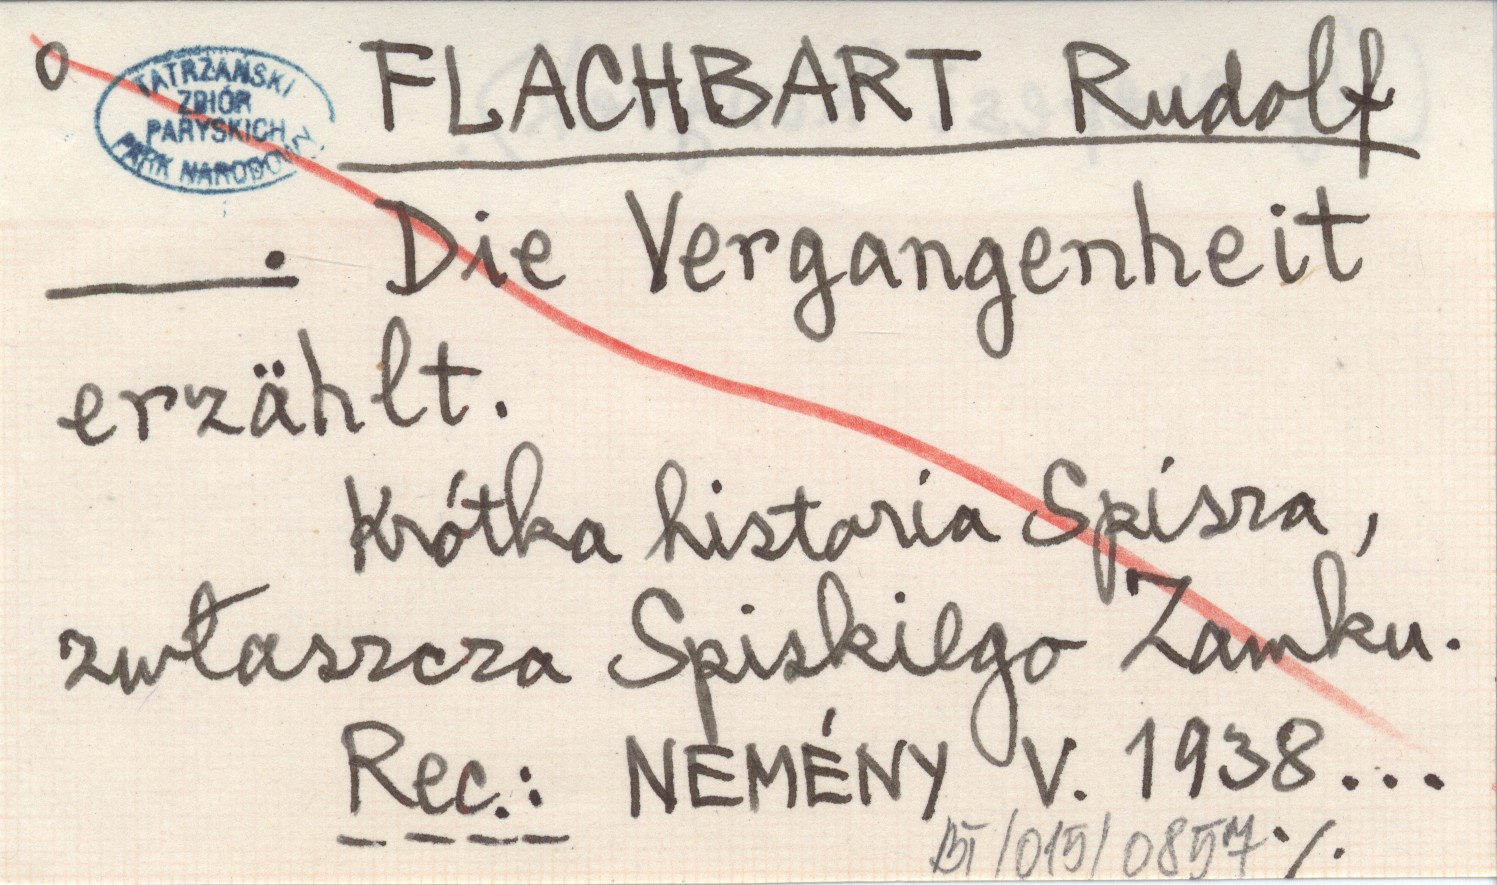 O
TATRZAŃSKI
ZBIÓR
PARYSKICH
PARK NARODOWY
FLACHBART Rudolf
. Die Vergangenheit
erzählt.
Krótka historia Spisza,
zwłaszcza Spiskiego Zamku.
Rec.: NEMÉNY V. 1938...
BT/015/0857 ./.